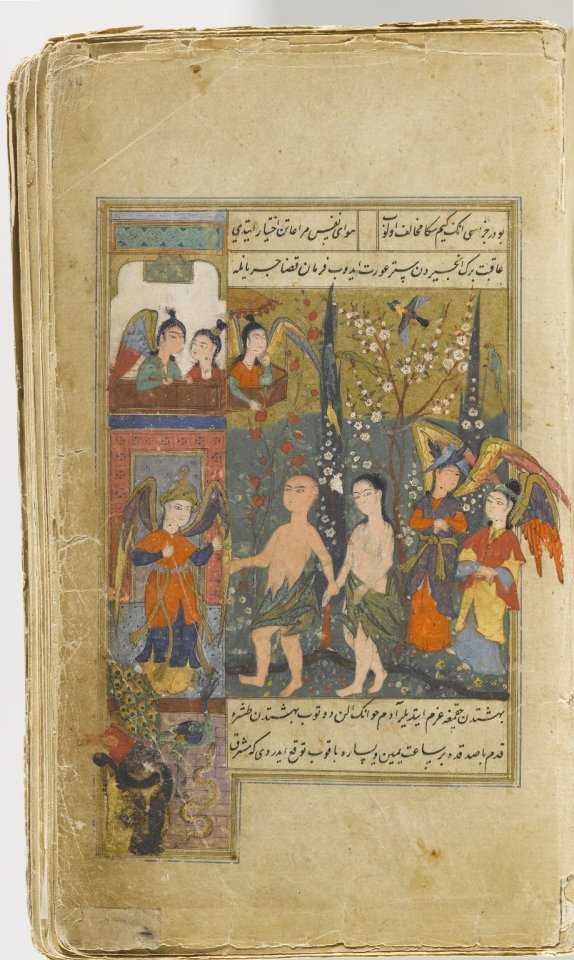 بودر جزاسی انک کیم سکا مخالف اولوب هوای نفس مراعاتن اختیار ایتدی
عاقبت برک انجیردن ستر عورت ایدوب فرمان قضا جریانله
بهشتدن چیقمغه عزم ایتدیلر آدم حوانک الن دوتوب بهشتدن طشره
قدم باصدقده بر ساعت یمین و یساره باقوب توقع ایدردی که